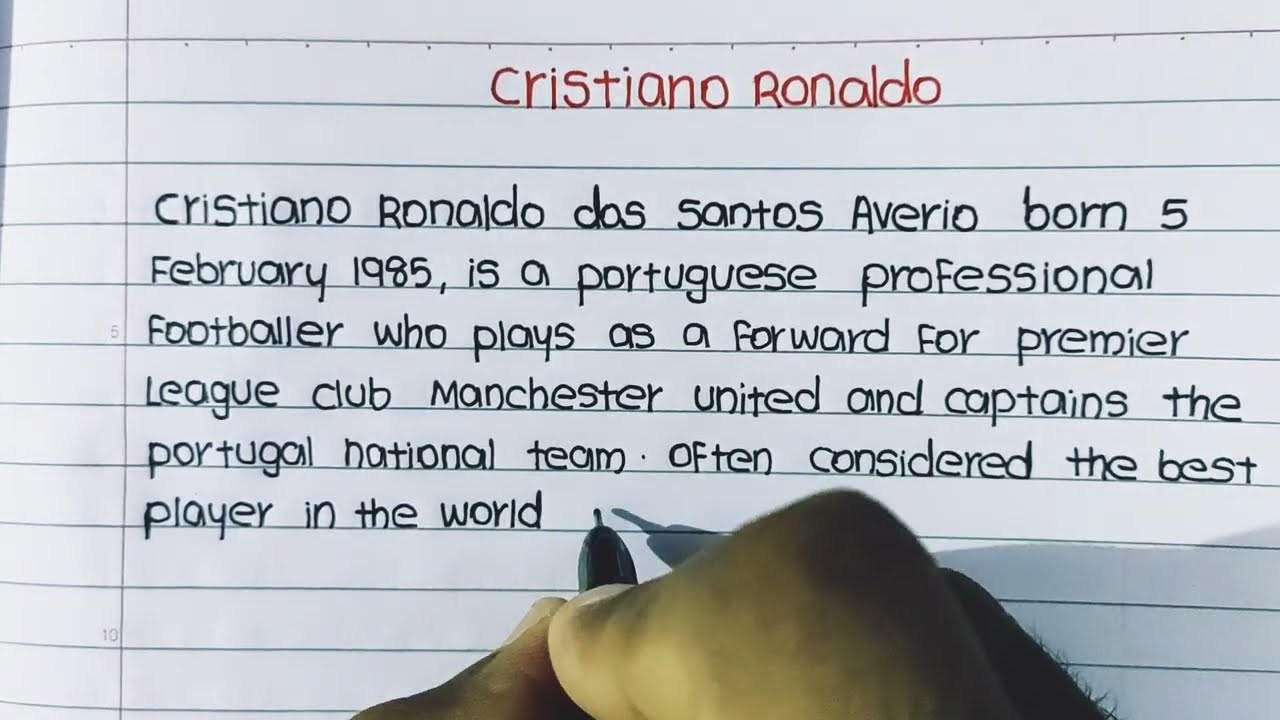 Cristiano Ronaldo
Cristiano Ronaldo dos santos Averio born 5
February 1985, is a portuguese professional
Footballer who plays as a forward for premier
League club Manchester united and captains the
portugal national team. Often considered the best
player in the world
5
10